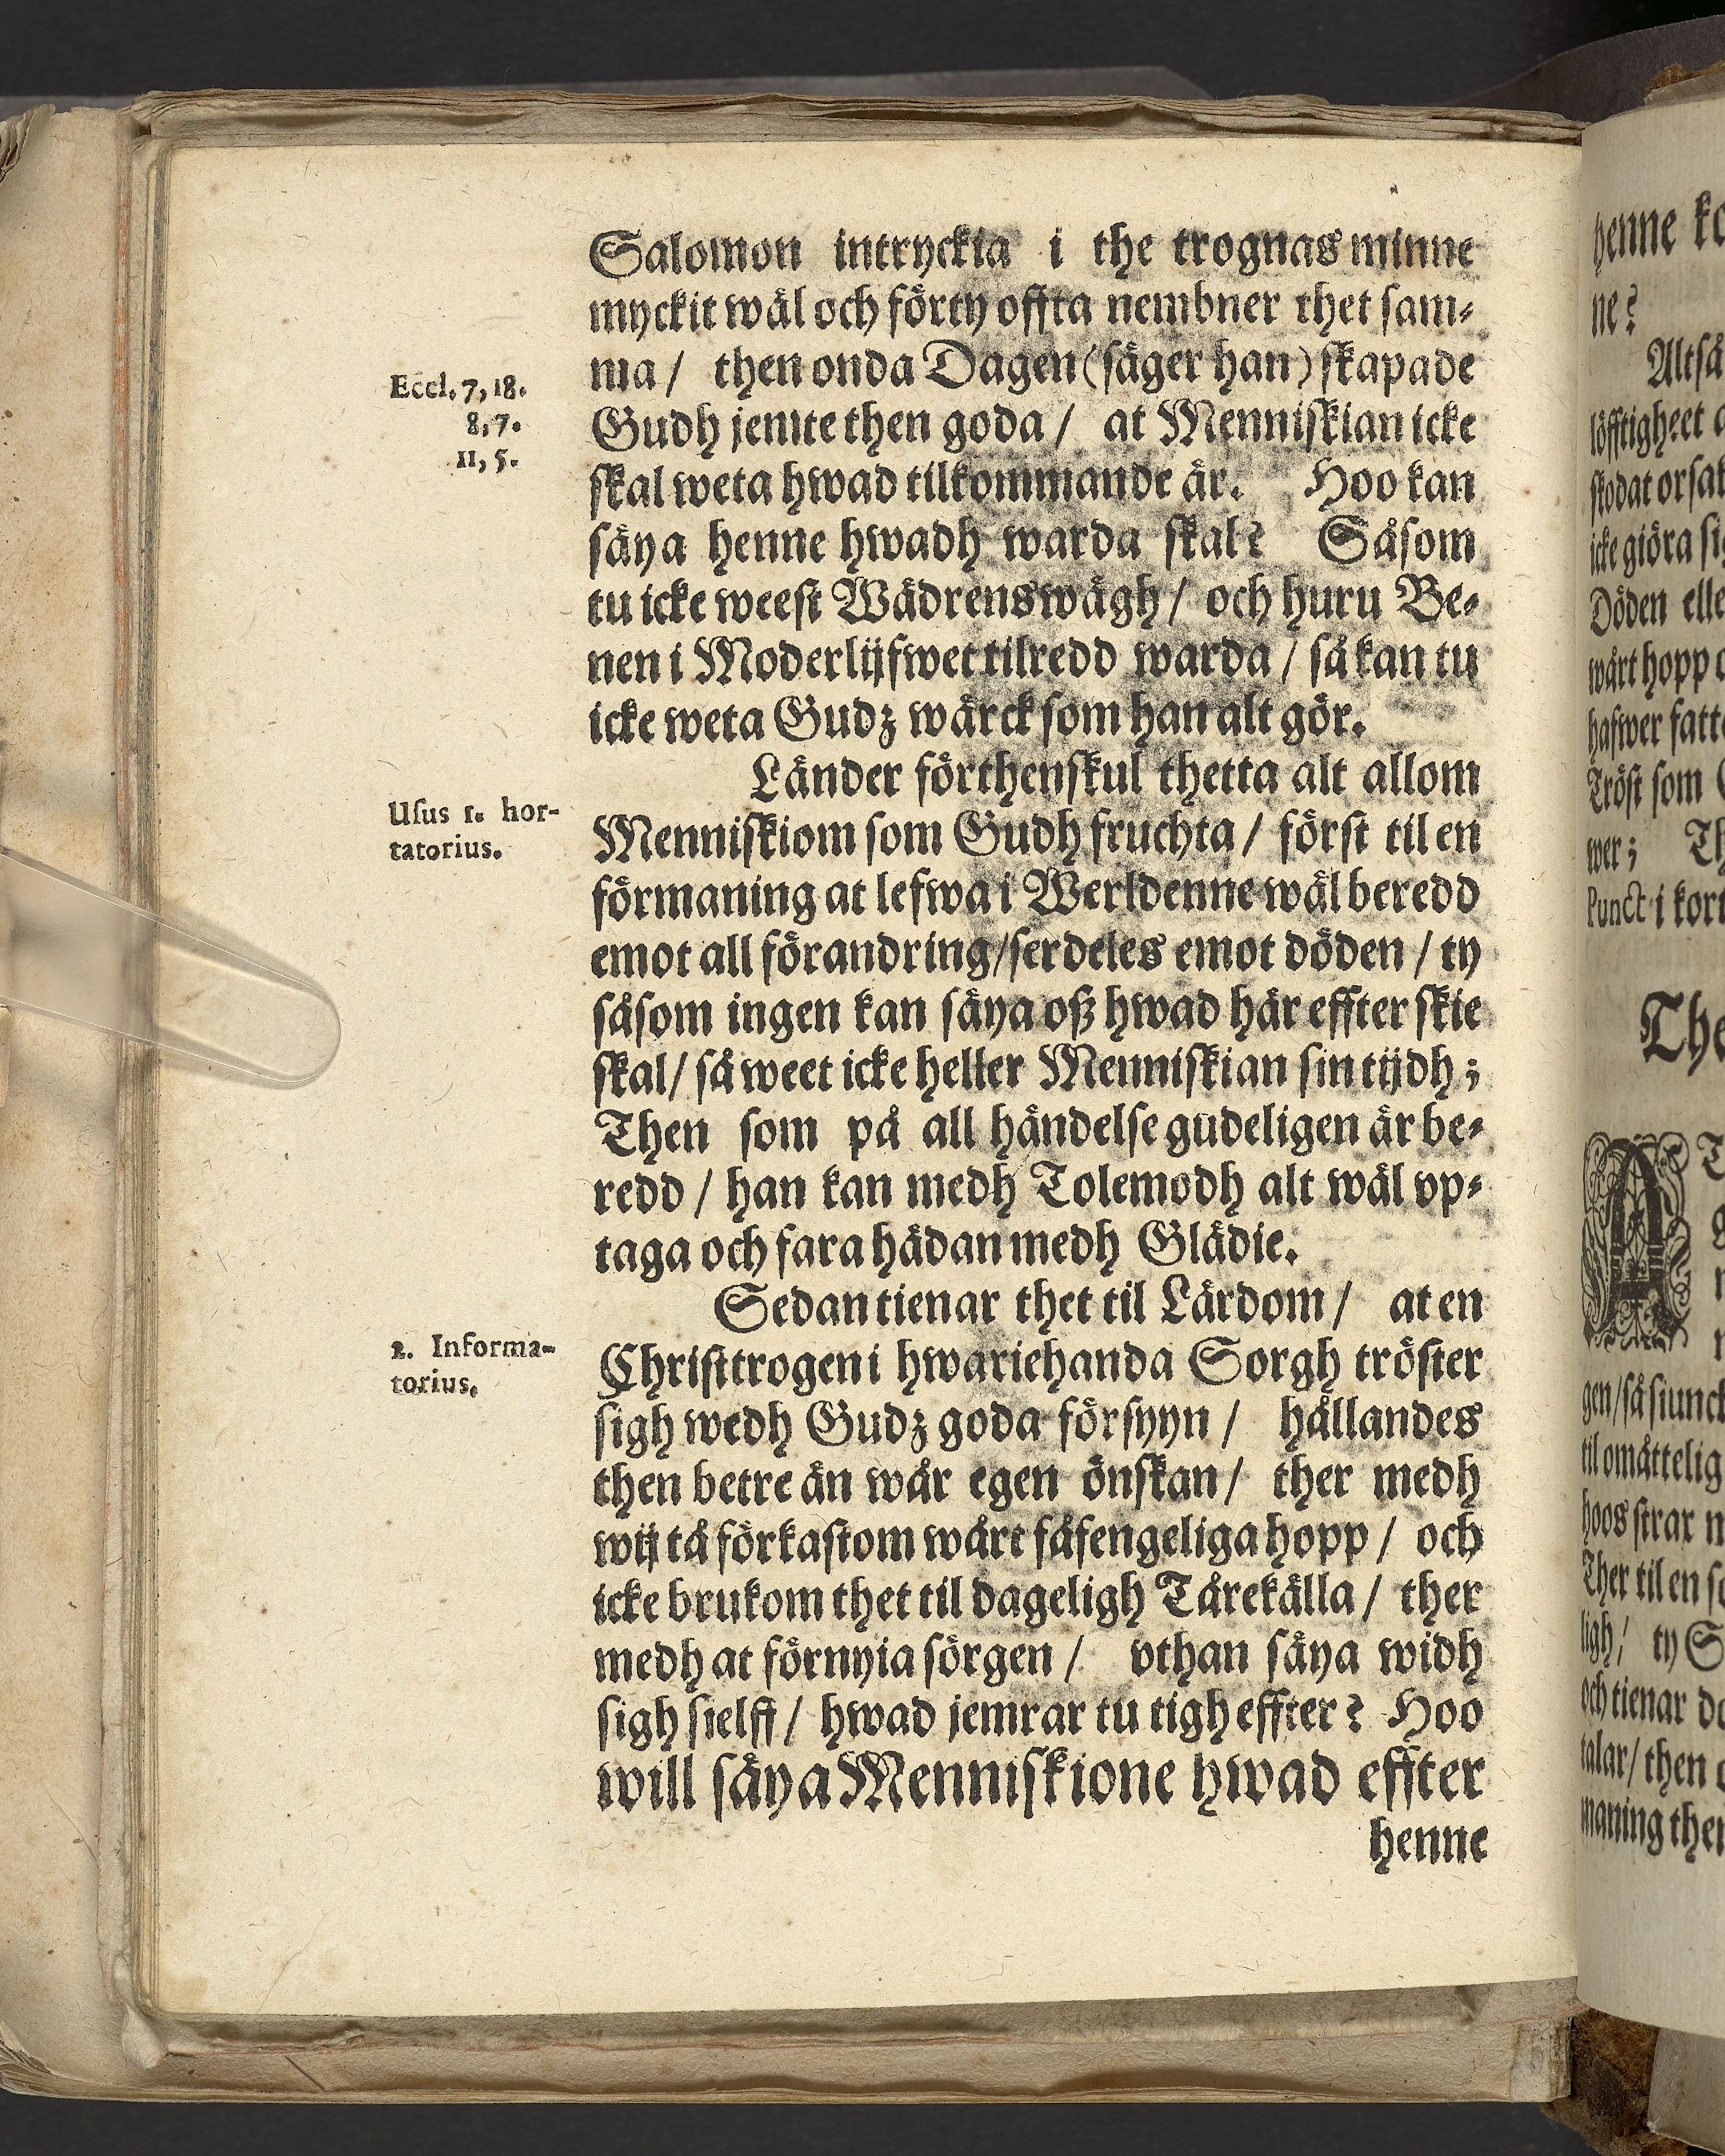 Salomon intryckia i the trognas minne
myckit wäl och förty offta nembner thet sam-
ma / then onda Dagen (säger han) skapade
Eccl. 7, 18.
Gudh jemte then goda / at Menniskian icke
8, 7.
skal weta hwad tilkommande är. Hoo kan
11, 5.
säya henne hwadh warda skal? Såsom
tu icke weest Wädrens wägh / och huru Be-
nen i Moderlijfwet tilredd warda / så kan tu
icke weta Gudz wärck som han alt gör.
Länder förthenskul thetta alt allom
Usus 1. hor-
tatorius.
Menniskiom som Gudh fruchta / först til en
förmaning at lefwa i Werldenne wäl beredd
emot all förandring/serdeles emot döden / ty
såsom ingen kan säya oß hwad här effter skie
skal/ så weet icke heller Menniskian sin tijdh;
Then som på all händelse gudeligen är be-
redd / han kan medh Tolemodh alt wäl vp-
taga och fara hädan medh Glädie.
Sedan tienar thet til Lärdom / at en
2. Informa-
torius.
Christtrogen i hwariehanda Sorgh tröster
sigh wedh Gudz goda försyyn / hållandes
then betre än wår egen önskan/ ther medh
wij tå förkastom wårt fåfengeliga hopp / och
icke brukom thet til dageligh Tårekälla / ther
medh at förnyia sörgen / vthan säya widh
sigh sielff / hwad jemrar tu tigh effter? Hoo
will säya Menniskione hwad effter
henne
henne
ne?
Altså
löfftigheet
skodat
icke giöra
Döden
wårt hopp
hafwer
Tröst som
wer;
Punct i
The
A
gen/så
til
hoos strax
Ther til en
ligh/ ty
och tienar
talar/ then
maning